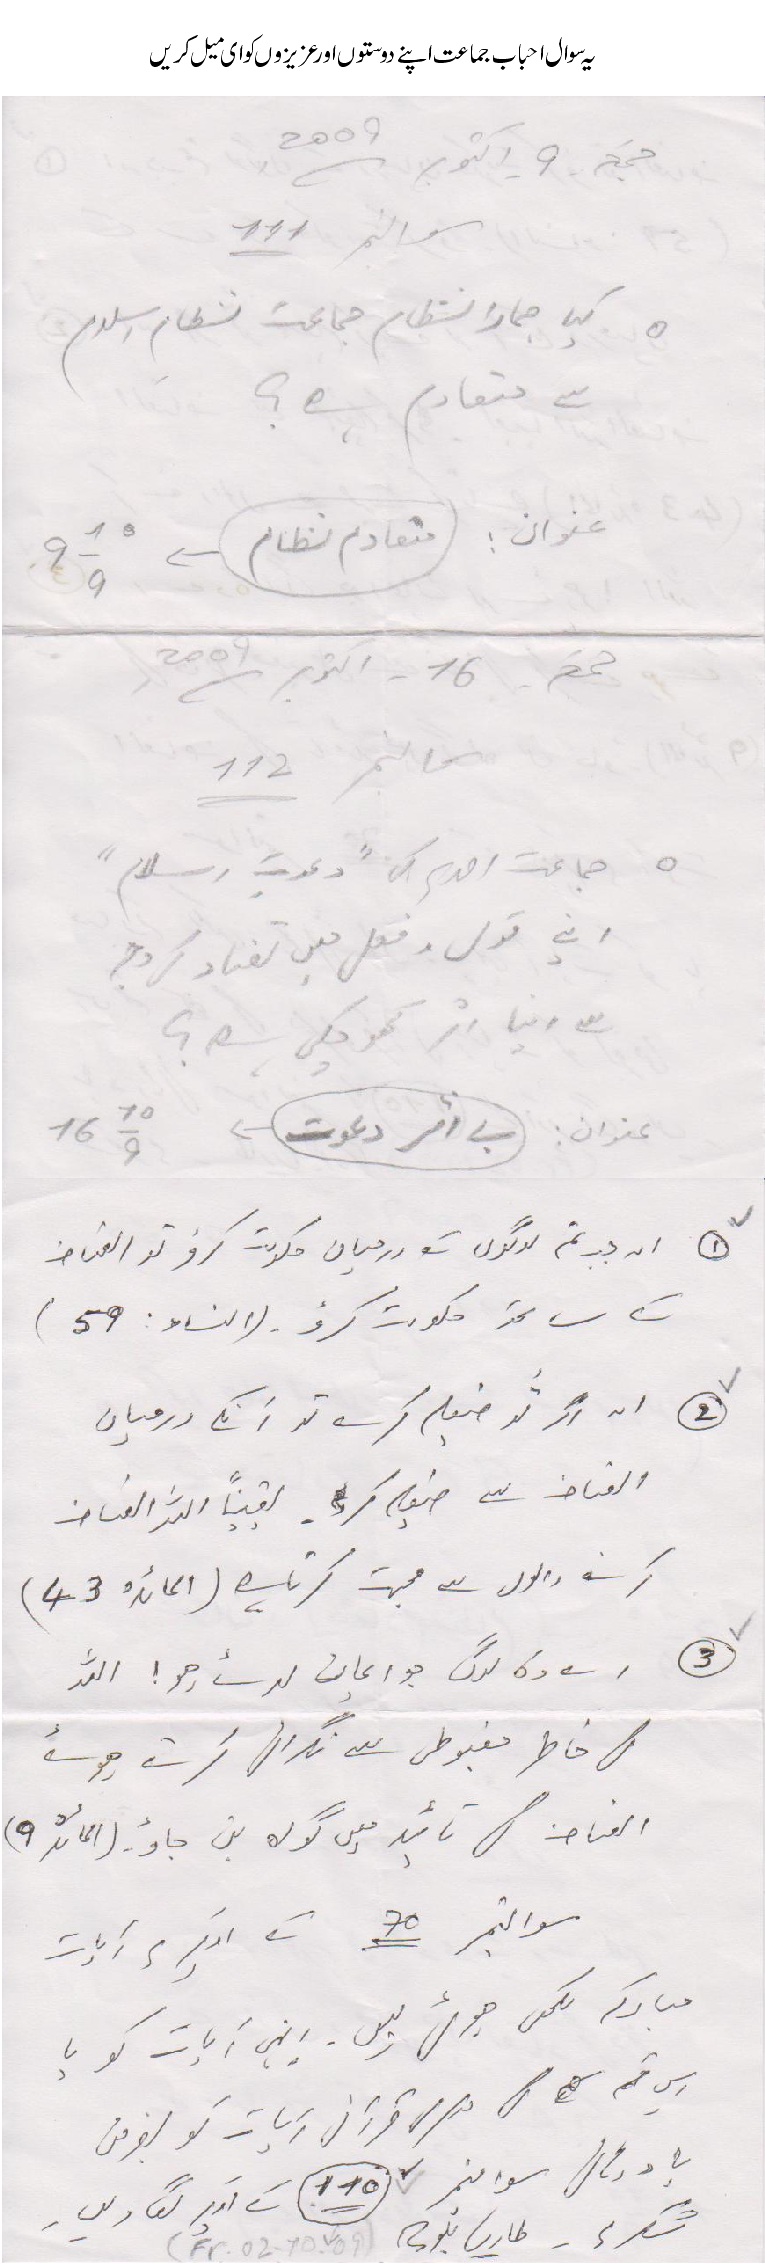 یہ سوال احباب جماعت اپنے دوستوں اور عزیزوں کو ای میل کریں
جمعہ - 9 - اکتوبر 2009
سوالنمبر 111
o کیا ہمارا نظام جماعت نظام اسلام
سے متصادم ہے ؟
عنوان : متصادم نظام ← 9 10/9
جمعہ - 16 - اکتوبر 2009
سوالنمبر 112
o جماعت احمدیہ کی "دعوتِ اسلام"
اپنے قول و فعل میں تضاد کی وجہ
سے اپنا اثر کھو چکی ہے ؟
عنوان : بے اثر دعوت ← 16 10/9
① اور جب تم لوگوں کے درمیان حکومت کرو تو انصاف
کے ساتھ حکومت کرو - (النساء : 59)
② اور اگر تُو فیصلہ کرے تو انکے درمیان
انصاف سے فیصلہ کر - یقیناً اللہ انصاف
کرنے والوں سے محبت کرتا ہے (المائدہ 43)
③ اے وہ لوگو جو ایمان لائے ہو ! اللہ
کی خاطر مضبوطی سے نگرانی کرتے ہوئے
انصاف کی تائید میں گواہ بن جاؤ - (المائدہ 9)
سوالنمبر 70 کے اوپر یہ آیات
مبارکہ لکھی ہوئی ہیں - انہی آیات کو یا
اس قسم کی دوسری قرآنی آیات کو بغرض
یاددہانی سوالنمبر 110 کے اوپر لگا دیں -
شکریہ - طارق بلوچ (Fr. 02-10-09)